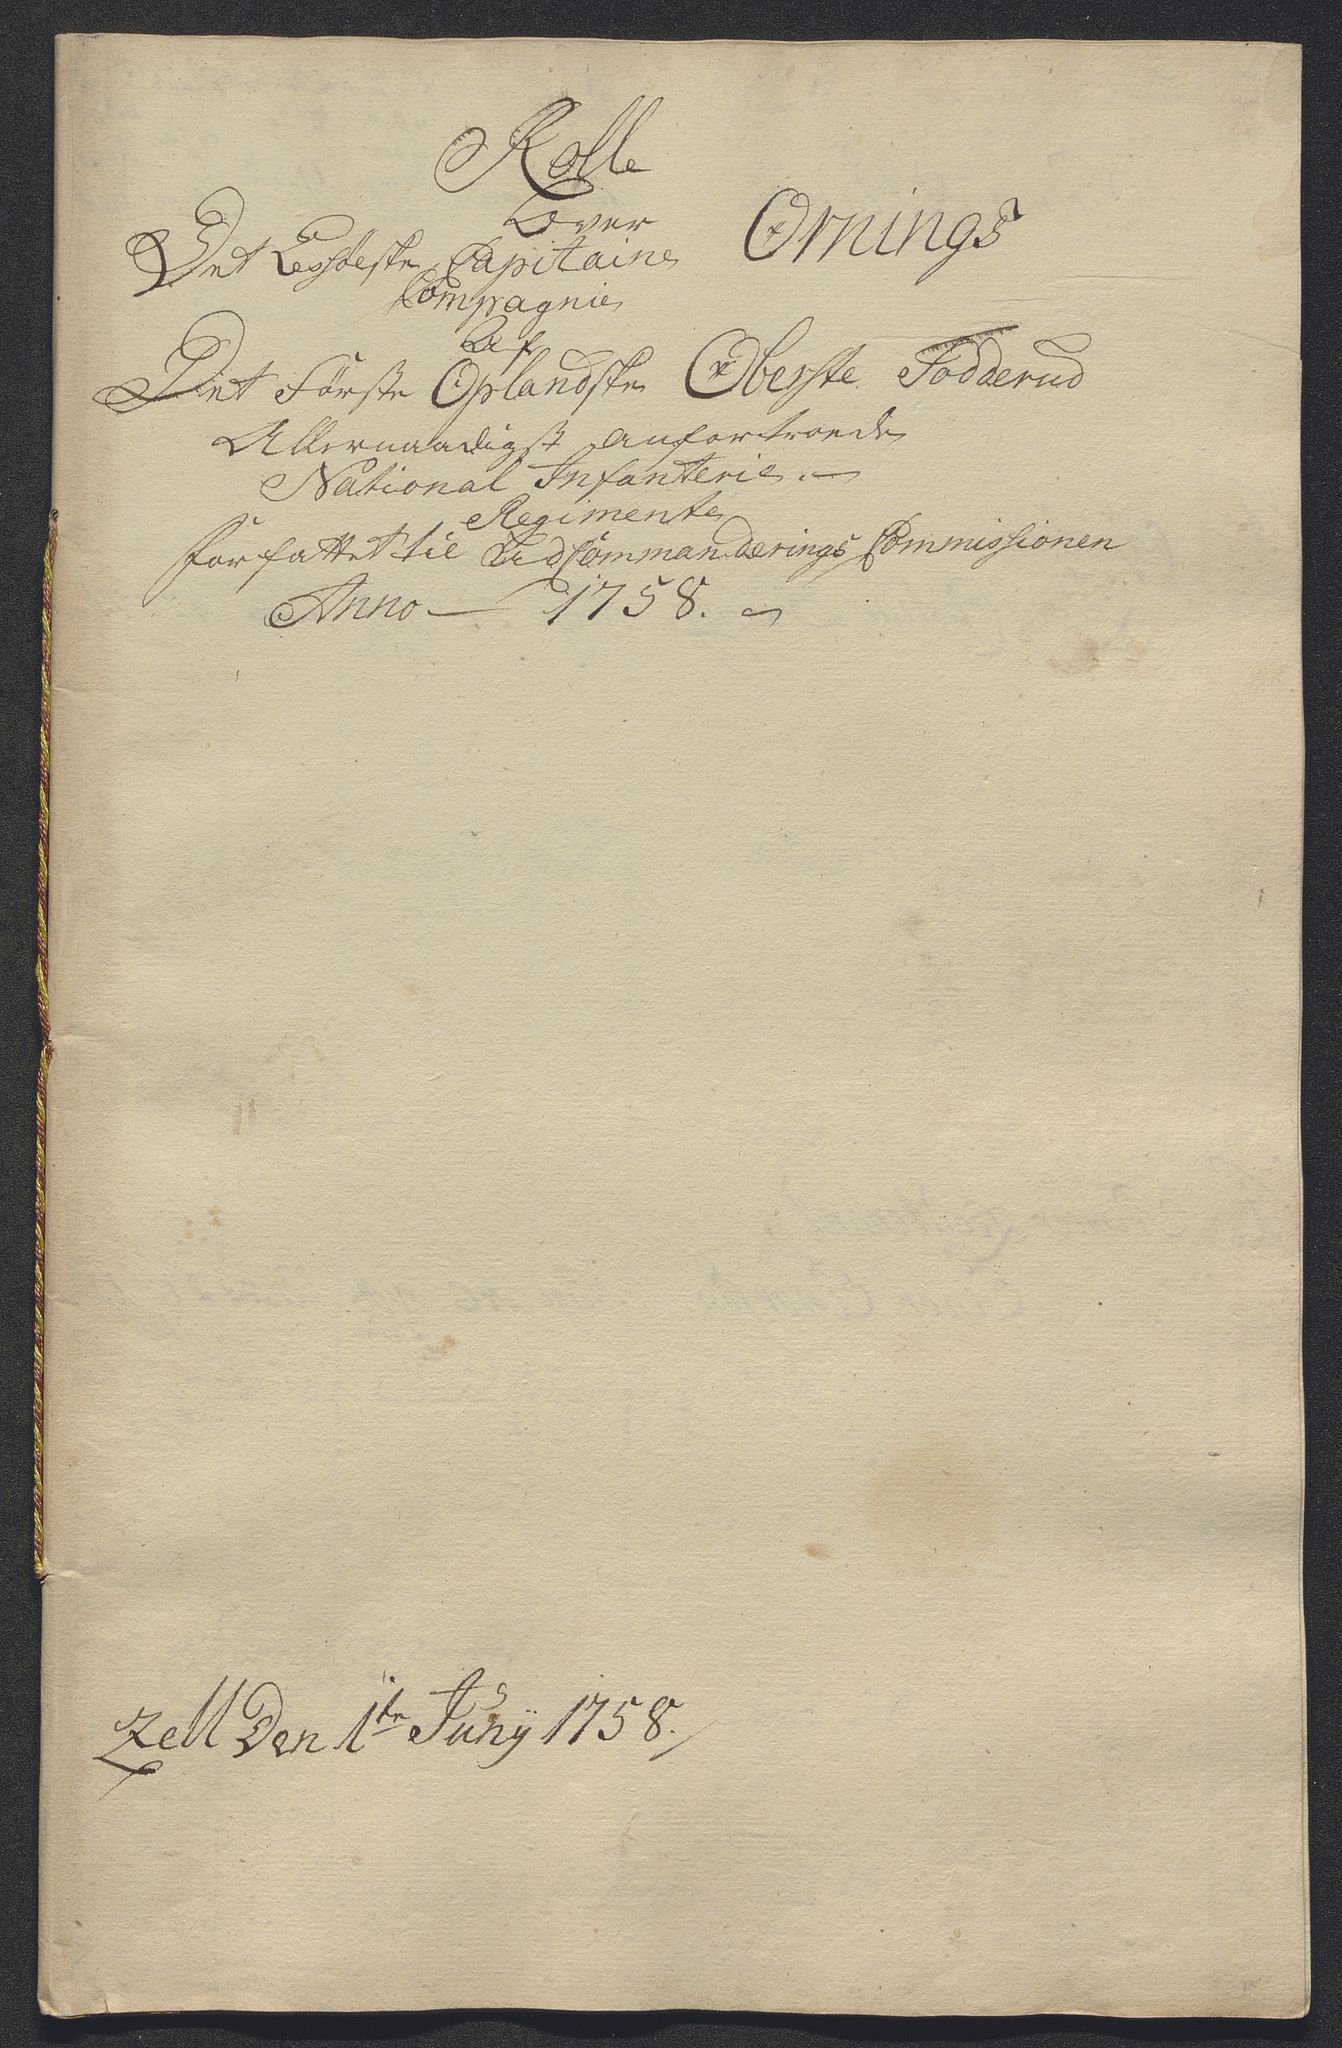 Rolle
Over
Det Lessøeske Capitaine Ornings
Compagnie
Af
Det Første Oplandske Oberste Fodderud
Allernaadigst anfortroede
National Infanterie. —
Regimente
forfattet til Udcommanderings Commissionen
Anno — 1758. —
Zell Den 1te Juny 1758.